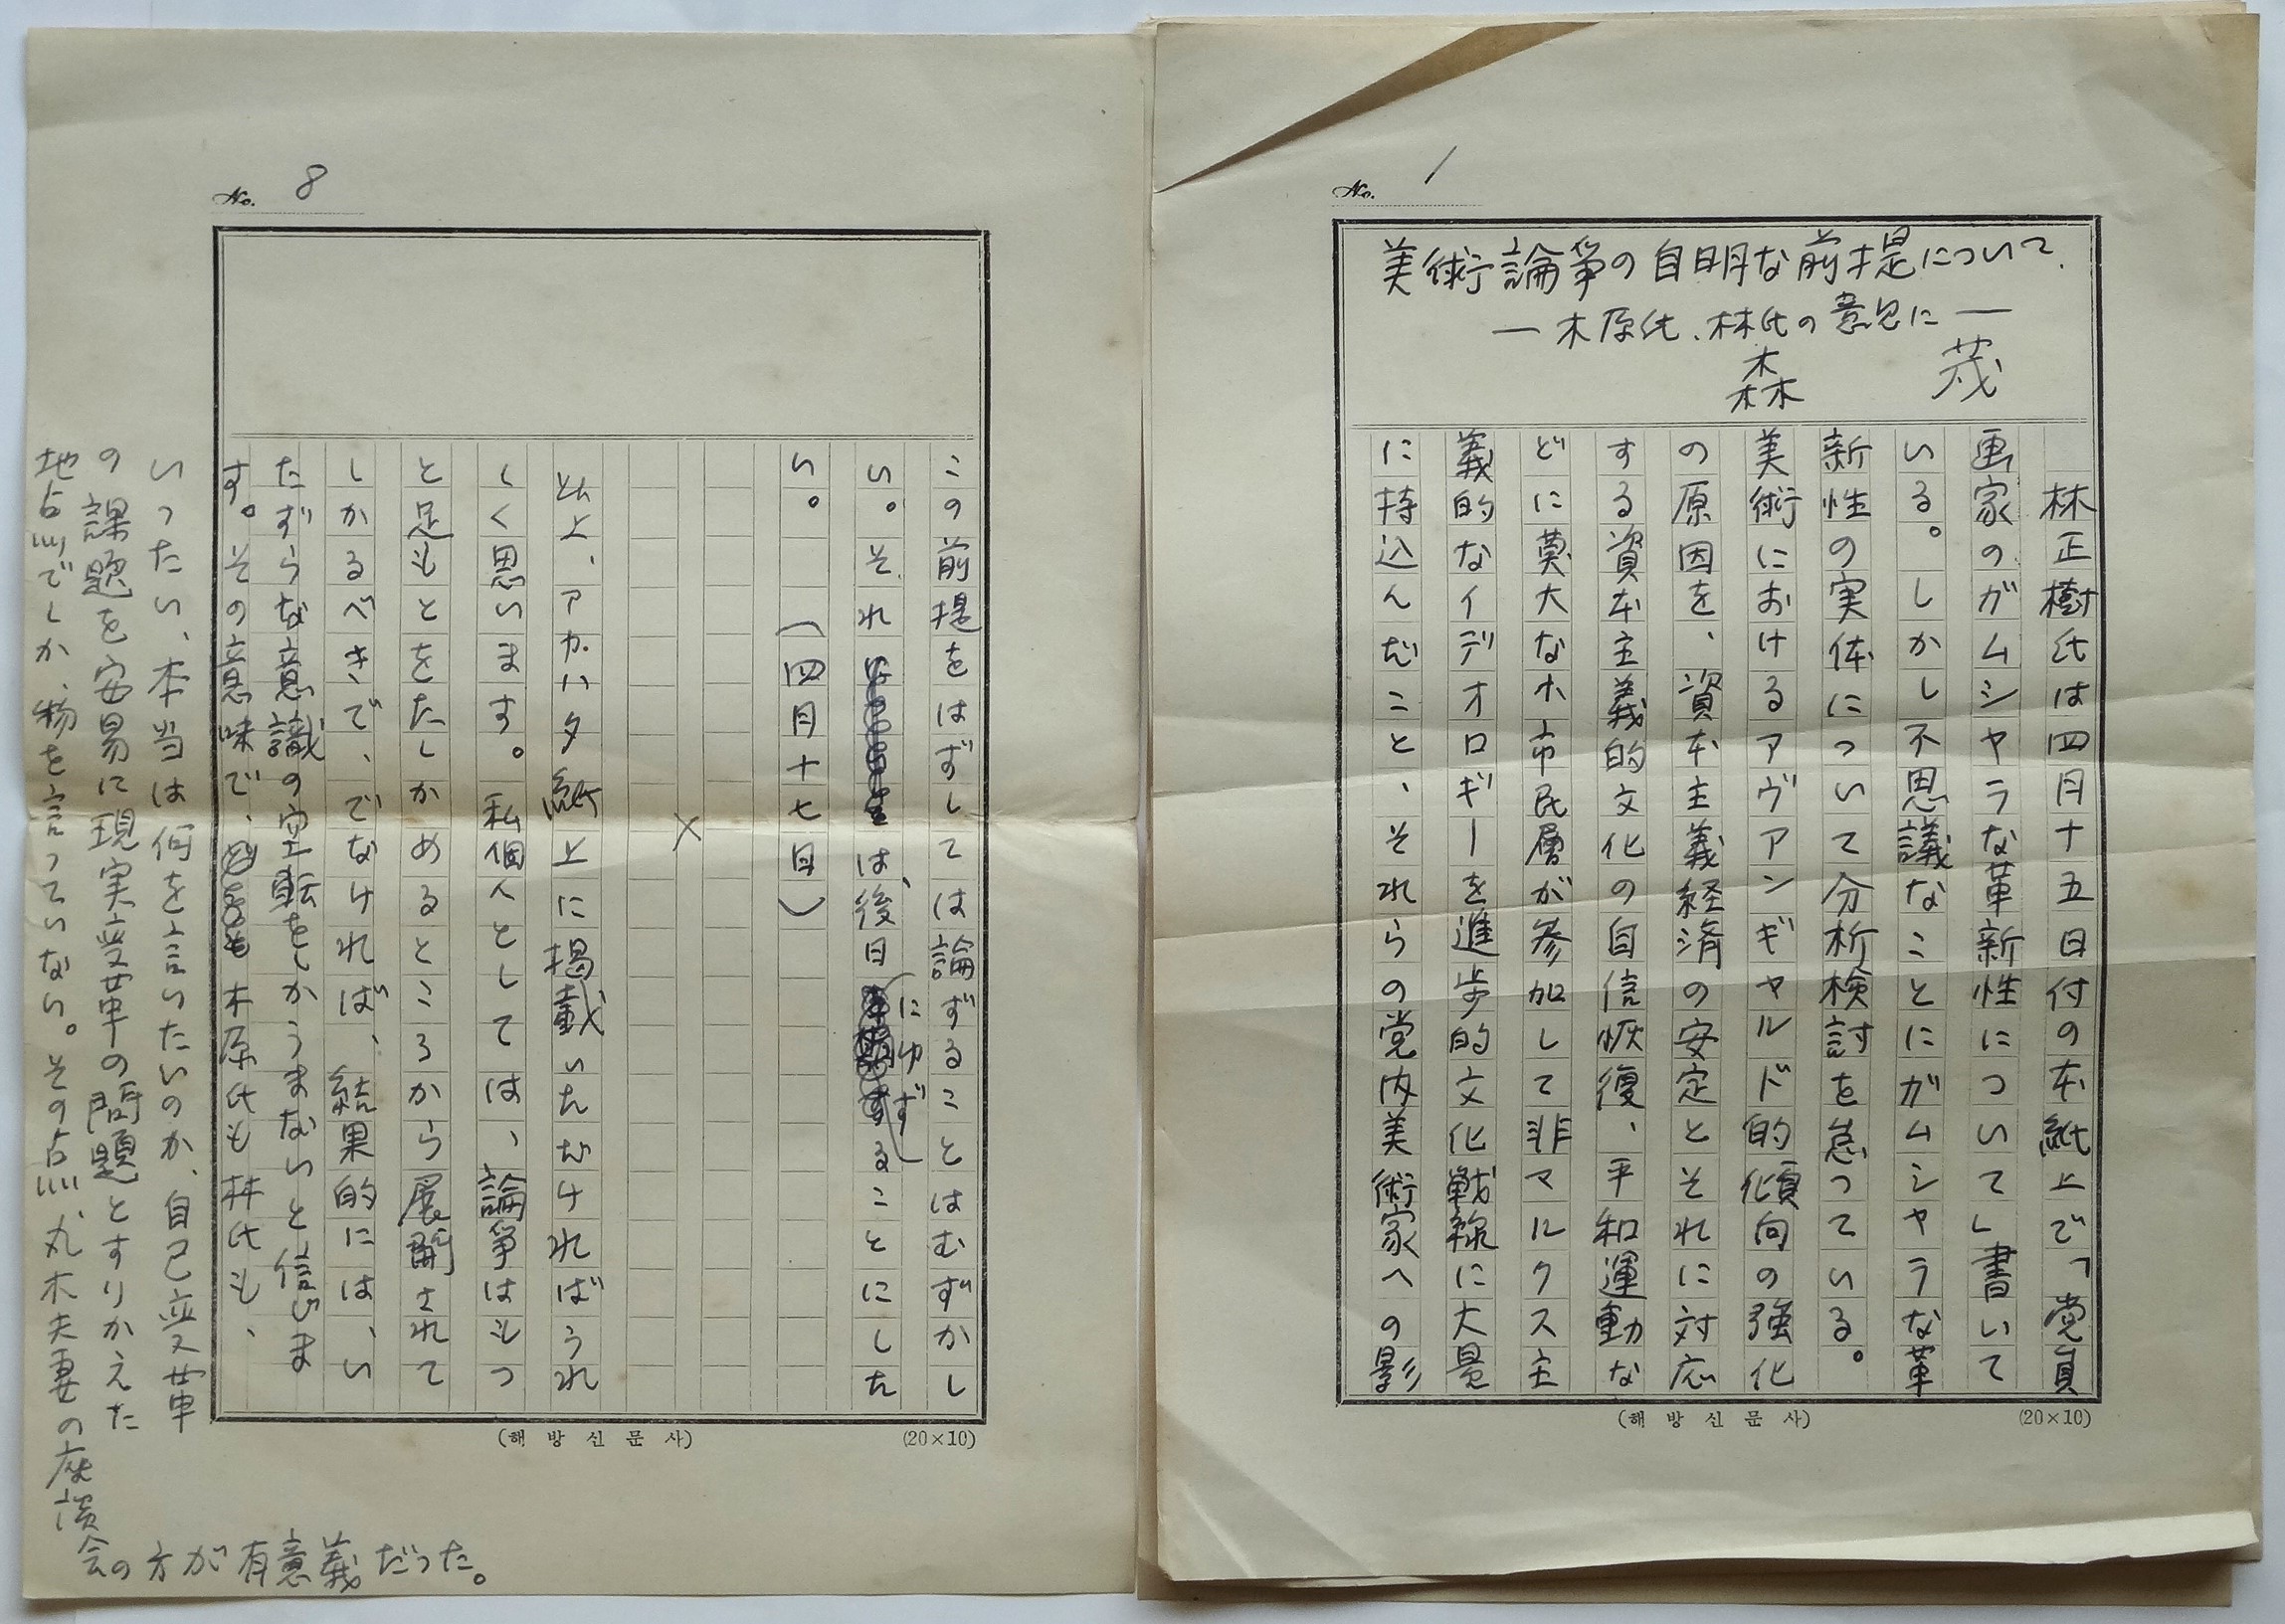 No. 1
美術論争の自明な前提について.
― 木原氏、林氏の意見に ―
森 茂
林正樹氏は四月十五日付の本紙上で「党員
画家のガムシャラな革新性について」書いて
いる。しかし不思議なことにガムシャラな革
新性の実体について分析検討を怠っている。
美術におけるアヴァンギャルド的傾向の強化
の原因を、資本主義経済の安定とそれに対応
する資本主義的文化の自信恢復、平和運動な
どに莫大な小市民層が参加して非マルクス主
義的なイデオロギーを進歩的文化戦線に大量
に持込んだこと、それらの党内美術家への影
(해방신문사)
(20×10)
No. 8
この前提をはずしては論ずることはむずかし
い。それは、後日にゆずることにした
い。 (四月十七日)
×
以上、アカハタ紙上に掲載いただければうれ
しく思います。私個人としては、論争はもっ
と足もとをたしかめるところから展開されて
しかるべきで、でなければ、結果的には、い
たずらな意識の空転をしかうまないと信じま
す。その意味で、木原氏も林氏も、
いったい、本当は何を言いたいのか、自己変革
の課題を安易に現実変革の問題とすりかえた
地点でしか、物を言っていない。その点、丸木夫妻の座談
会の方が有意義だった。
(해방신문사)
(20×10)